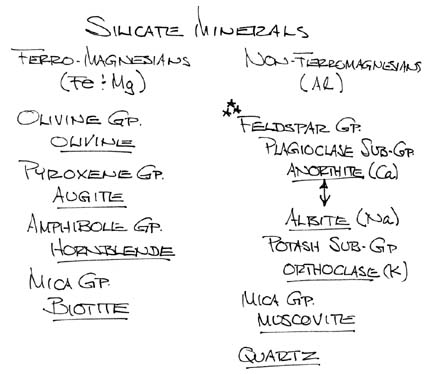 SILICATE MINERALS
FERRO-MAGNESIANS
(Fe & Mg)
OLIVINE GP.
OLIVINE
PYROXENE GP.
AUGITE
AMPHIBOLE GP.
HORNBLENDE
MICA GP.
BIOTITE
NON-FERROMAGNESIANS
(Al)
FELDSPAR GP.
PLAGIOCLASE SUB-GP
ANORTHITE (Ca)
ALBITE (Na)
POTASH SUB-GP
ORTHOCLASE (K)
MICA GP.
MUSCOVITE
QUARTZ